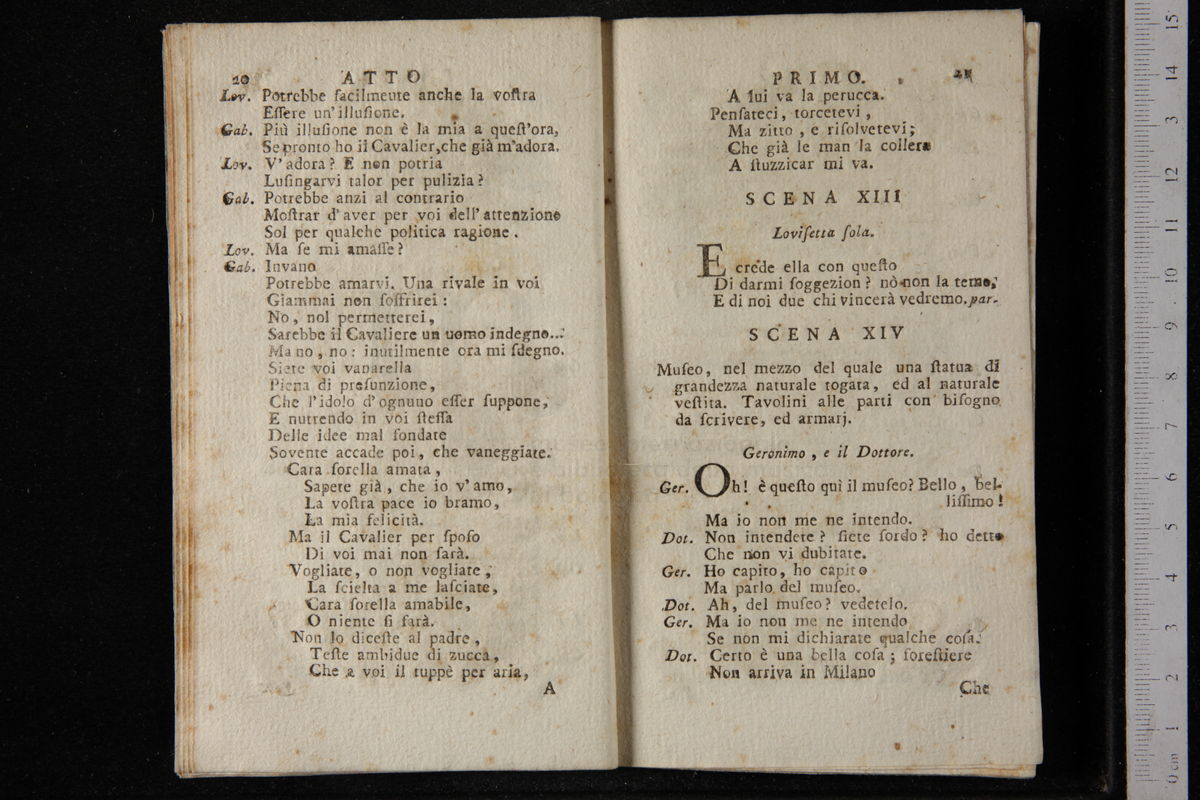 20 ATTO
Lov. Potrebbe facilmente anche la voſtra
Eſſere un'illuſione.
Gab. Più illuſione non è la mia a queſt'ora,
Se pronto ho il Cavalier, che già m'adora.
Lov. V'adora? E non potria
Luſingarvi talor per pulizia?
Gab. Potrebbe anzi al contrario
Moſtrar d'aver per voi dell'attenzione
Sol per qualche politica ragione.
Lov. Ma ſe mi amaſſe?
Gab. Invano
Potrebbe amarvi. Una rivale in voi
Giammai non ſoffrirei:
No, nol permetterei,
Sarebbe il Cavaliere un uomo indegno...:
Ma no, no: inutilmente ora mi ſdegno.
Siete voi vanarella
Piena di preſunzione,
Che l'idolo d'ognuno eſſer ſuppone,
E nutrendo in voi ſteſſa
Delle idee mal fondate
Sovente accade poi, che vaneggiate.
Cara ſorella amata,
Sapete già, che io v'amo,
La voſtra pace io bramo,
La mia felicità.
Ma il Cavalier per ſpoſo
Di voi mai non ſarà.
Vogliate, o non vogliate,
La ſcielta a me laſciate,
Cara ſorella amabile,
O niente ſi farà.
Non lo diceſte al padre,
Teſte ambidue di zucca,
Che a voi il tuppè per aria,
A
PRIMO. 21
A lui va la perucca.
Penſateci, torcetevi,
Ma zitto, e riſolvetevi;
Che già le man la collera
A ſtuzzicar mi va.
SCENA XIII
Loviſetta ſola.
E crede ella con queſto
Di darmi ſoggezion? nò non la temo,
E di noi due chi vincerà vedremo. par.
SCENA XIV
Muſeo, nel mezzo del quale una ſtatua di
grandezza naturale togata, ed al naturale
veſtita. Tavolini alle parti con biſogno
da ſcrivere, ed armarj.
Geronimo, e il Dottore.
Ger. Oh! è queſto quì il muſeo? Bello, bel-
liſſimo!
Ma io non me ne intendo.
Dot. Non intendete? ſiete ſordo? ho detto
Che non vi dubitate.
Ger. Ho capito, ho capito
Ma parlo del muſeo.
Dot. Ah, del muſeo? vedetelo.
Ger. Ma io non me ne intendo
Se non mi dichiarate qualche coſa.
Dot. Certo è una bella coſa; foreſtiere
Non arriva in Milano
Che
0 cm 1 2 3 4 5 6 7 8 9 10 11 12 13 14 15